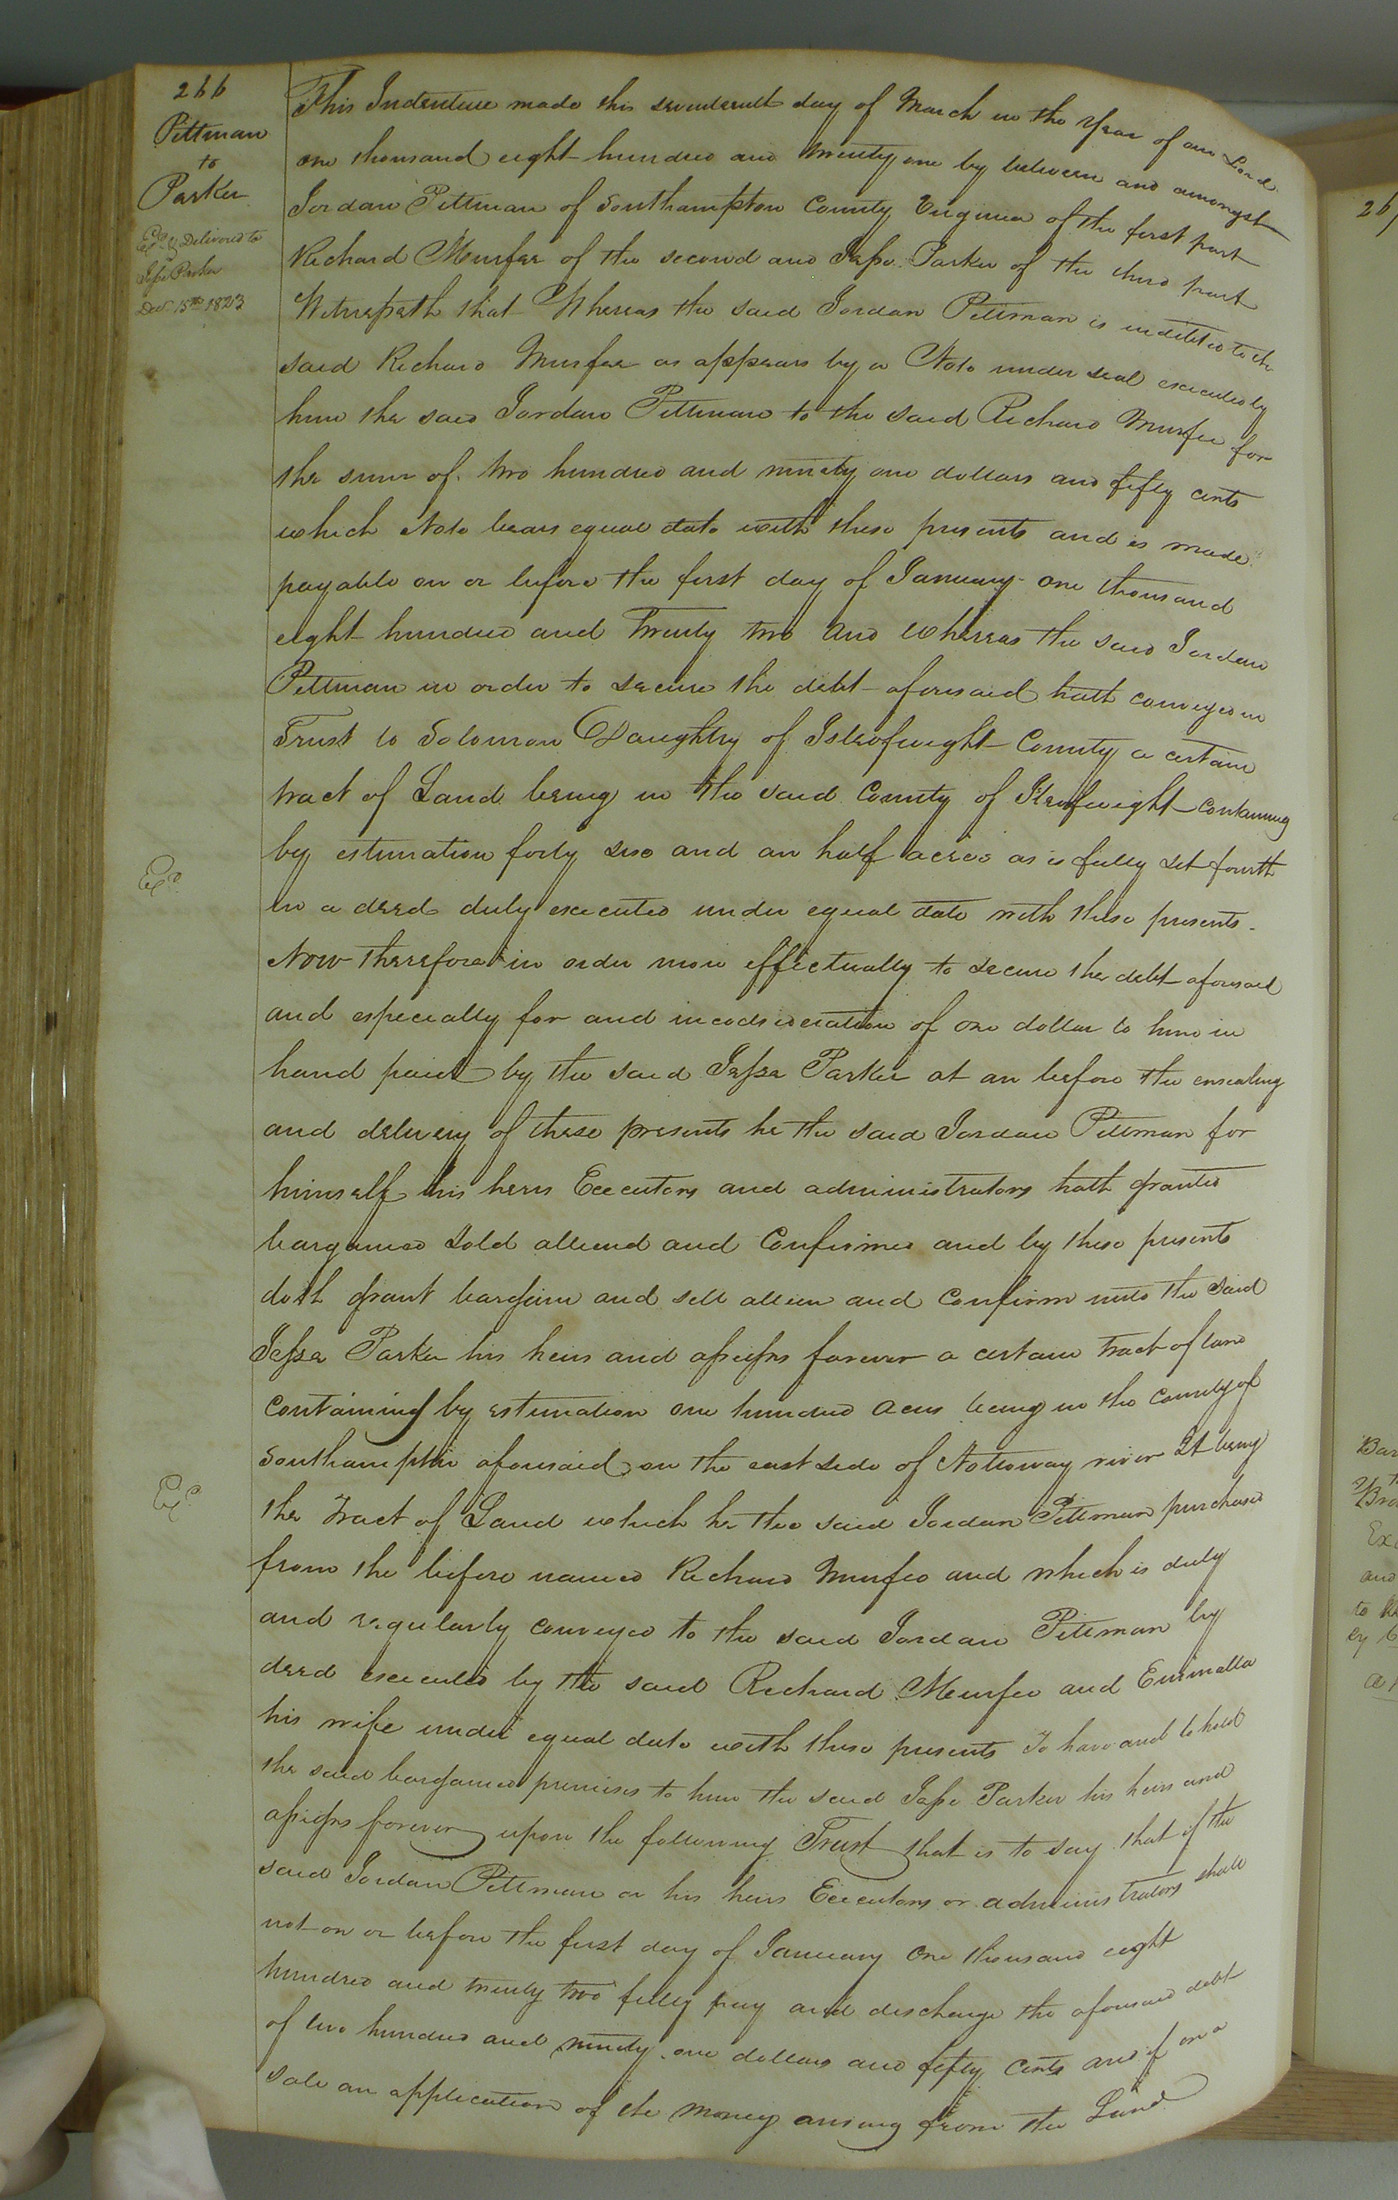 266
Pittman
to
Parker
Exd & Delivered to
Jesse Parker
Decr 15th 1823
This Indenture made this seventeenth day of March in the Year of our Lord
one thousand eight hundred and twenty one by between and amongst
Jordan Pittman of Southampton County Virginia of the first part
Richard Murfee of the second and Jesse Parker of the third part
Witnesseth that Whereas the said Jordan Pittman is indebted to the
said Richard Murfee as appears by a Note under seal executed by
him the said Jordan Pittman to the said Richard Murfee for
the sum of two hundred and ninety one dollars and fifty cents
which Note bears equal date with these presents and is made
payable on or before the first day of January one thousand
eight hundred and Twenty two And Whereas the said Jordan
Pittman in order to secure the debt aforesaid hath conveyed in
Trust to Solomon Daughtry of Isleofwight County a certain
tract of Land being in the said County of Isleofwight containing
by estimation forty six and an half acres as is fully set fourth
in a deed duly executed under equal date with these presents.
Now therefore in order more effectually to secure the debt aforesaid
and especially for and in codsideration of one dollar to him in
hand paid by the said Jesse Parker at an before the ensealing
and delivery of these presents he the said Jordan Pittman for
himself his heirs Executors and administrators hath granted
bargained sold aliend and Confirmed and by these presents
doth grant bargain and sell alien and Confirm unto the said
Jesse Parker his heirs and assigns forever a certain tract of land
containing by estimation one hundred acres being in the county of
Southampton aforesaid on the east side of Nottoway river It being
the Tract of Land which he the said Jordan Pittman purchased
from the before named Richard Murfee and which is duly
and regularly conveyed to the said Jordan Pittman by
deed executed by the said Richard Murfee and
his wife under equal date with these presents To have and to hold
the said bargained premises to him the said Jesse Parker his heirs and
assigns forever upon the following Trust that is to say that if the
said Jordan Pittman or his heirs Executors or administrators shall
not on or before the first day of January One thousand eight
hundred and twenty two fully pay and discharge the aforesaid debt
of two hundred and ninety one dollars and fifty cents and if on a
sale an application of the money arising from the Land
Exd
Exd